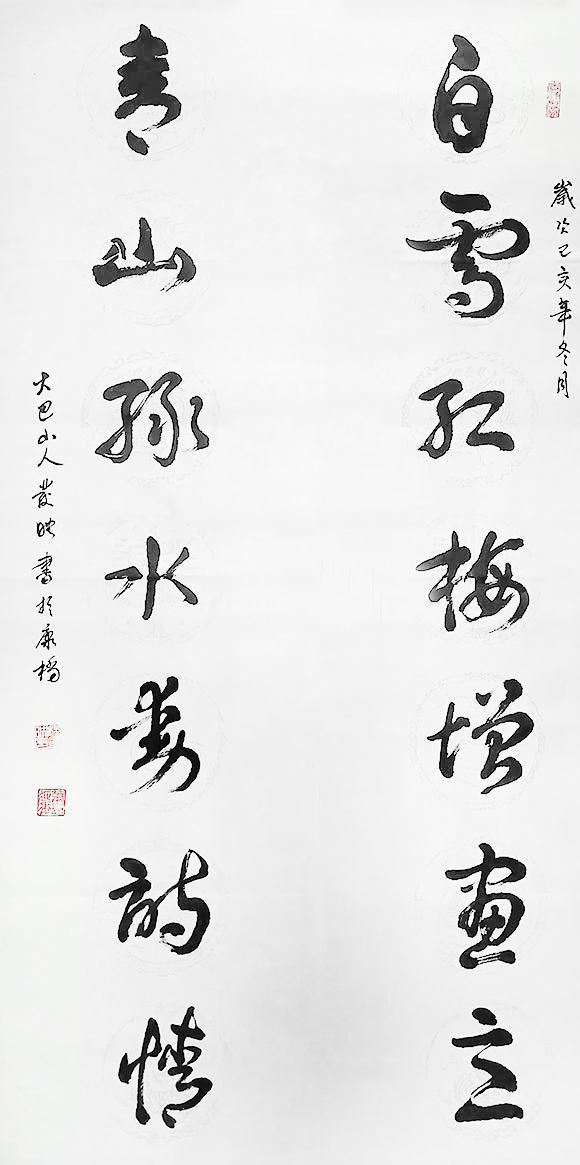 歲次己亥年冬月
白雪紅梅增畫意
青山綠水動詩情
大巴山人 映書於康橋